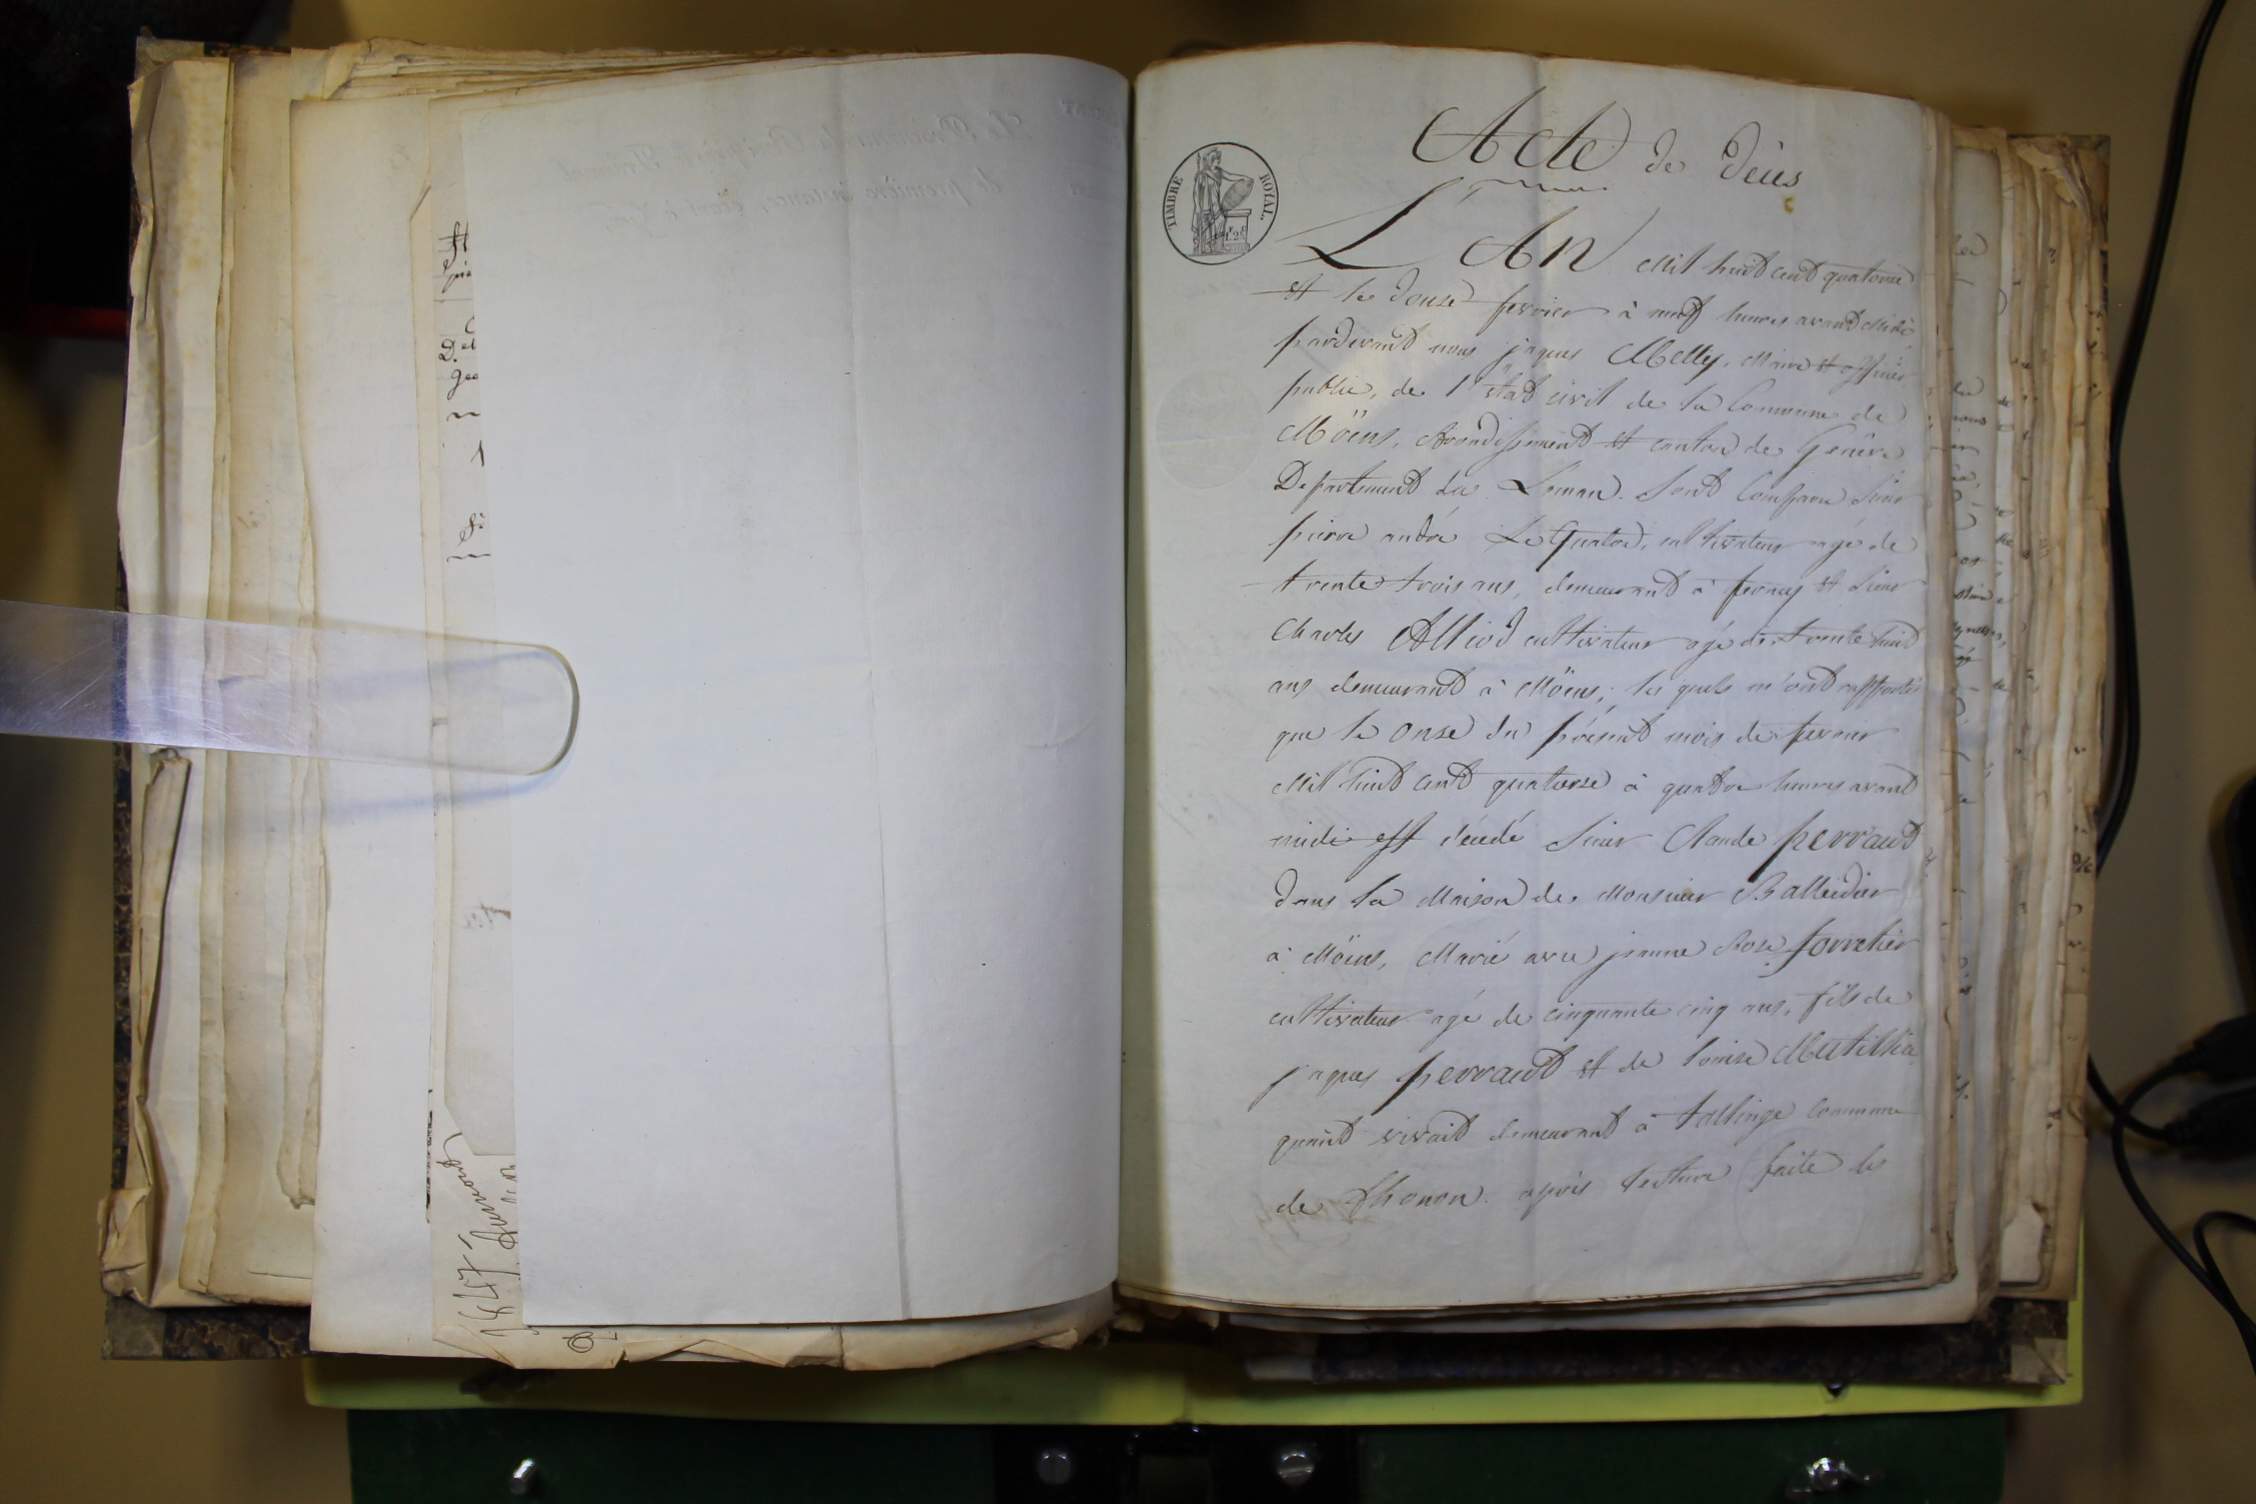 Acte de Déces
TIMBRE ROYAL.
L'An Mil huit cent quatorze
et le douze fevrier à neuf heures avant midi
pardevant nous jaques Melly, Maire et officier
public, de l'état civil de la Commune de
Möens, Arondissement et canton de Genève
Departement du Leman. Sont Comparu Sieur
pierre andré Le Quatre, cultivateur agé de
trente trois ans, demeurant à fernex et Sieur
Charles Alliod cultivateur agé de trente huit
ans demeurant à Möens; les quels m'ont rapporté
que le onze du présent mois de fevrier
Mil huit cent quatorze à quatre heures avant
midi est décedé Sieur Claude perraud
dans la Maison de Monsieur Balleidier
à Möens, Marié avec jeanne Rose forretier
cultivateur agé de cinquante cinq ans, fils de
jaques perraud et de Louise
quand vivait demeurant à tallinge commune
de Thonon. après lecture faite le
1847